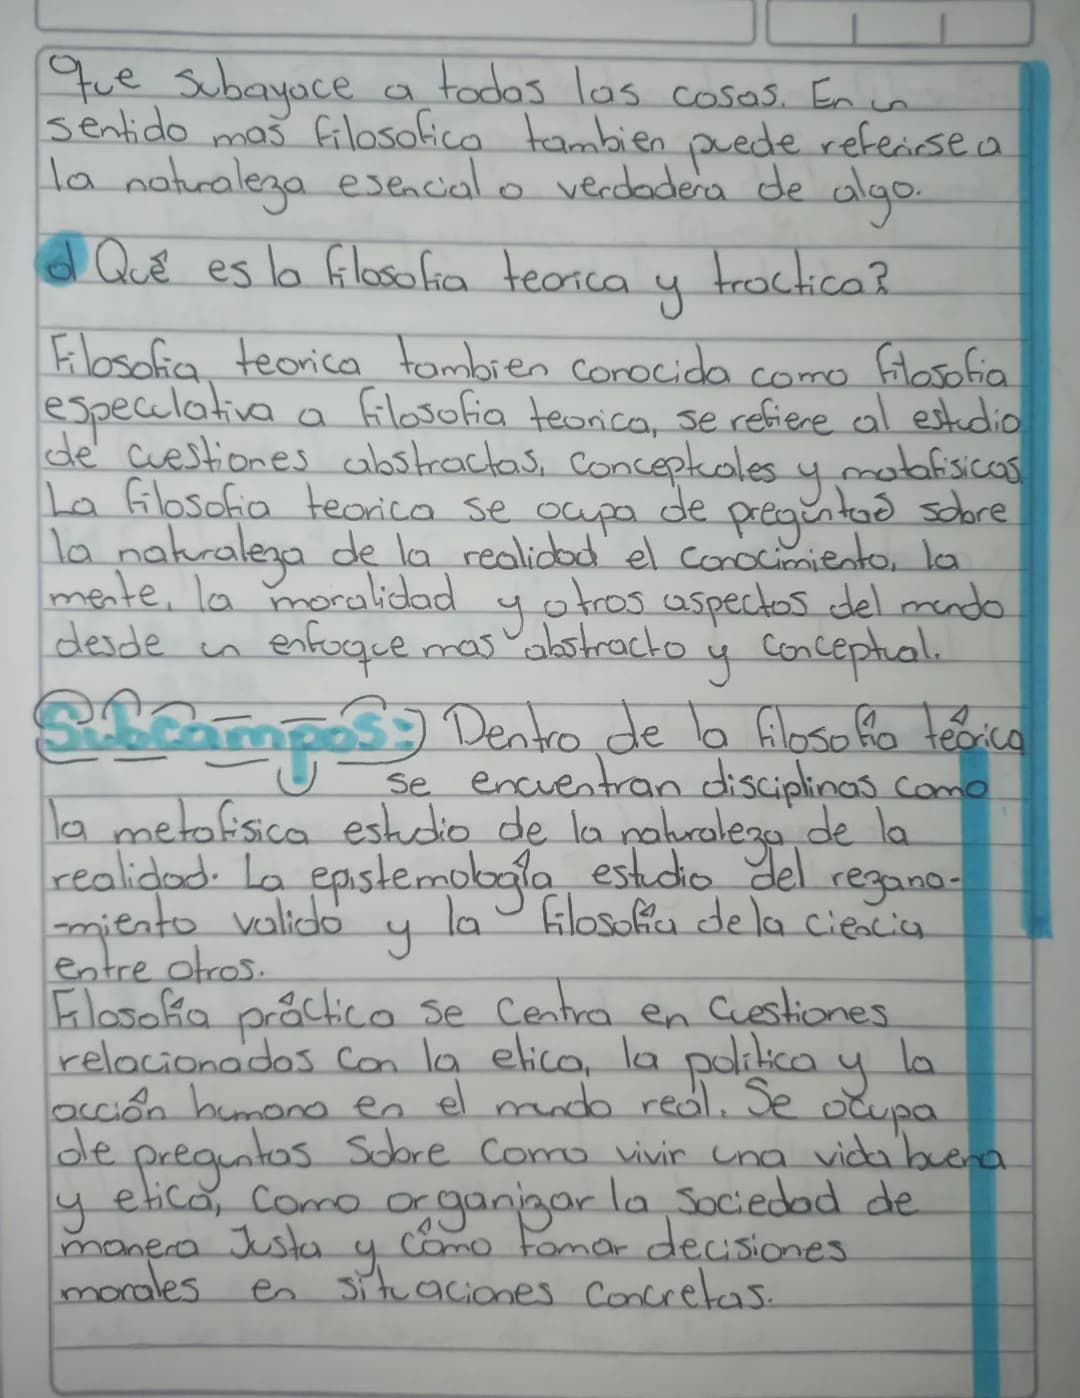 que subayace a todas las cosas. En un
sentido mas filosofico tambien puede referirse a
la naturaleza esencial o verdadera de algo.
d Qué es la filosofia teorica y tractica?
Filosofia teorica tambien conocida como filosofia
especulativa a filosofia teorica, se refiere al estudio
de cuestiones abstractas, conceptuales y matafisicas
La filosofia teorica se ocupa de preguntas sobre
la naturaleza de la realidad el conocimiento, la
mente, la moralidad y otros aspectos del mundo
desde un enfoque mas abstracto y conceptual.
Subcampos: Dentro de la filosofia teórica
se encuentran disciplinas como
la metafisica estudio de la naturaleza de la
realidad. La epistemología estudio del rezano-
-miento valido y la filosofía de la ciencia
entre otros.
Filosofía práctica se centra en cuestiones
relacionados con la etica, la politica y la
acción humana en el mundo real. Se ocupa
de preguntas sobre como vivir una vida buena
y etica, como organizar la sociedad de
manera Justa y cómo tomar decisiones
morales en situaciones concretas.